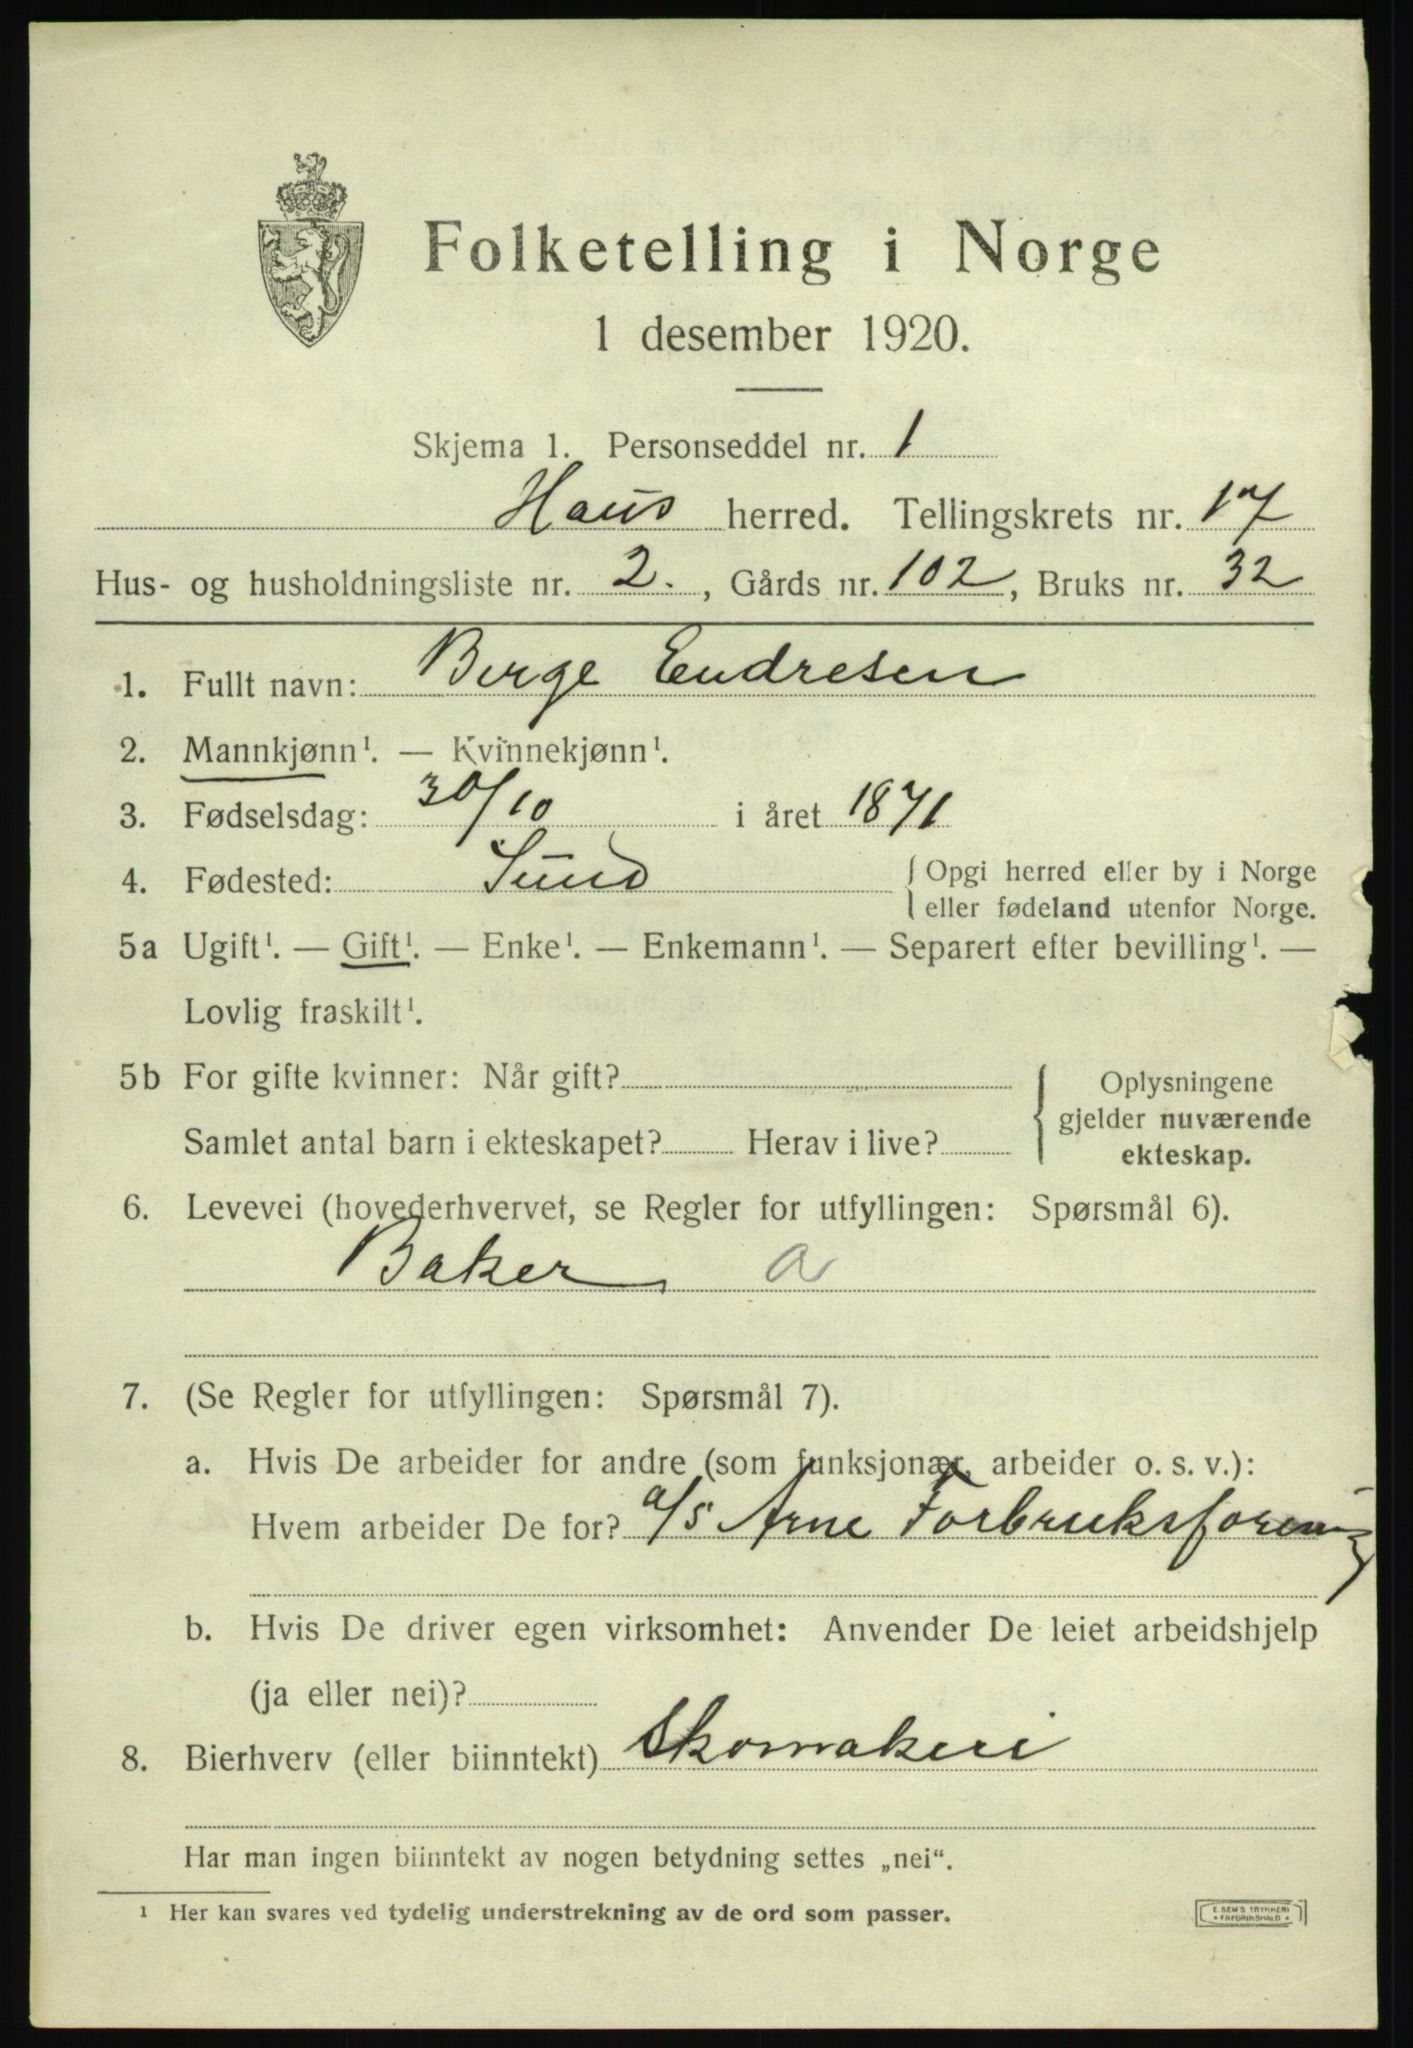 Folketelling i Norge
1 desember 1920.
Skjema 1. Personseddel nr. 1
Haus herred. Tellingskrets nr. 17
Hus- og husholdningsliste nr. 2., Gårds nr. 102, Bruks nr. 32
1. Fullt navn: Berge Endresen
2. Mannkjønn¹. — Kvinnekjønn¹.
3. Fødselsdag: 30/10 i året 1871
4. Fødested: Sund { Opgi herred eller by i Norge
eller fødeland utenfor Norge.
5a Ugift¹. — Gift¹. — Enke¹. — Enkemann¹. — Separert efter bevilling¹. —
Lovlig fraskilt¹.
5b For gifte kvinner: Når gift? { Oplysningene
gjelder nuværende
Samlet antal barn i ekteskapet? Herav i live? ekteskap.
6. Levevei (hovederhvervet, se Regler for utfyllingen: Spørsmål 6).
Baker a
7. (Se Regler for utfyllingen: Spørsmål 7).
a. Hvis De arbeider for andre (som funksjonær, arbeider o. s. v.):
Hvem arbeider De for? a/s Arne Forbruksforening
b. Hvis De driver egen virksomhet: Anvender De leiet arbeidshjelp
(ja eller nei)?
8. Bierhverv (eller biinntekt) Skomakeri
Har man ingen biinntekt av nogen betydning settes „nei“.
¹ Her kan svares ved tydelig understrekning av de ord som passer.
E. SEM'S TRYKKERI
FREDRIKSHALD